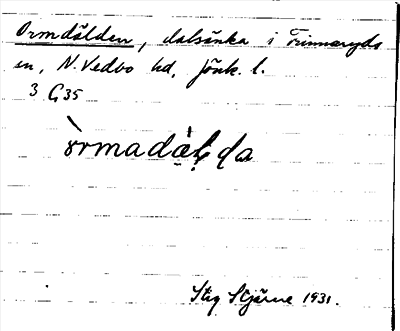 Ormdälden, dalsänka i Frinnaryds
sn, N. Vedbo hd, Jönk. l.
3 G 35
Stig Stjärne 1931.